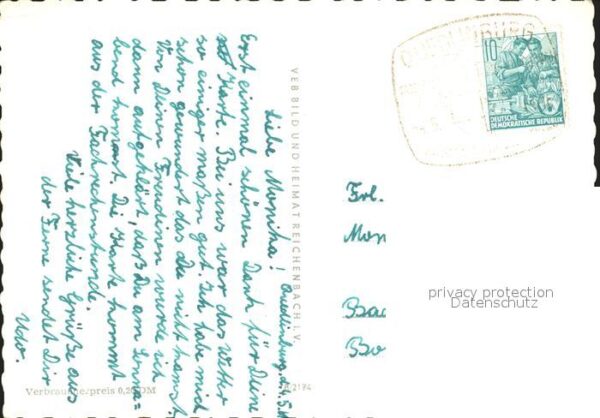 Quedlinburg, 4.5.
Liebe Monika!
Erst einmal schönen Dank für Deine
Karte. Bei uns war das Wetter
so einiger maßen gut. Ich habe mich
schon gewundert das du nicht kamst.
Von Deinen Freundinen wurde ich
dann aufgeklärt, daß Du am Sonna=
bend kommst. Die Karte kommt
aus der Fachrechenstunde.
Viele herzliche Grüße aus
der Ferne sendet Dir
Udo.
VEB BILD UND HEIMAT REICHENBACH I. V.
Verbraucherpreis 0,20 DM
QUEDLINBURG
10
5
DEUTSCHE
DEMOKRATISCHE REPUBLIK
Frl.
Mon
Bad
Bo
privacy protection
Datenschutz